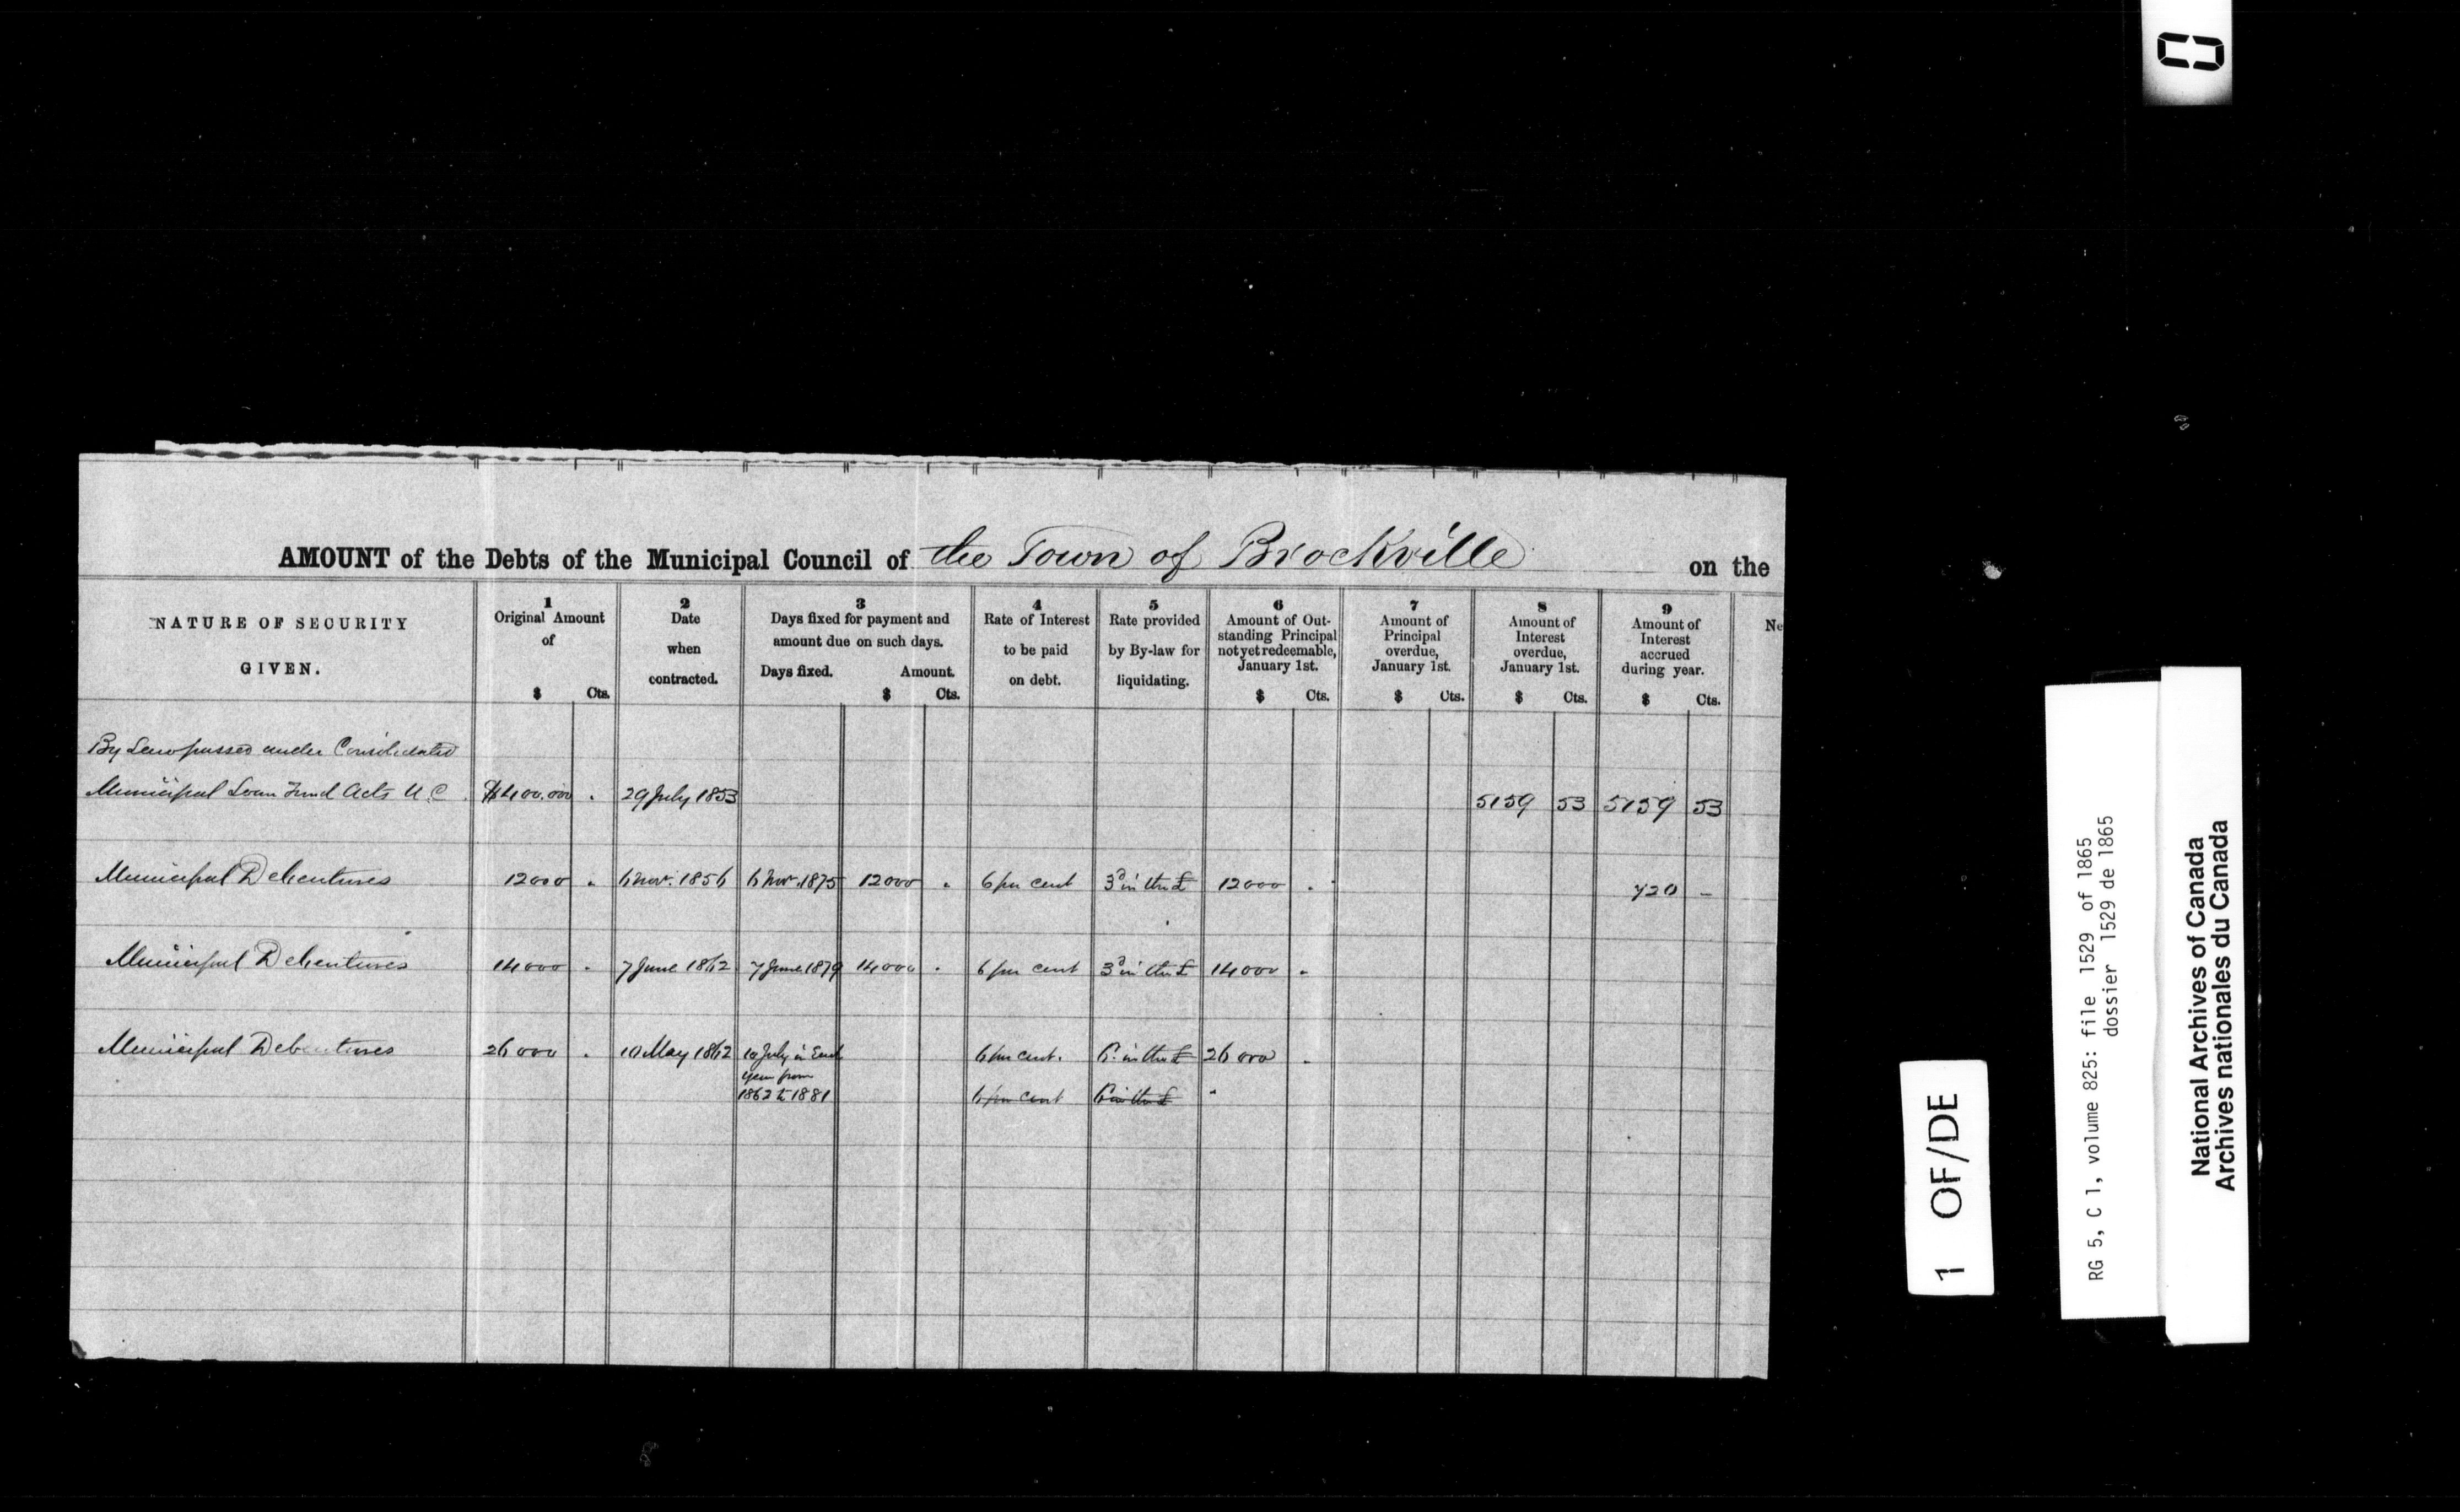 AMOUNT of the Debts of the Municipal Council of the Town of Brockville on the
NATURE OF SECURITY GIVEN.
1 Original Amount of $ Cts.
2 Date when contracted.
3 Days fixed for payment and amount due on such days. Days fixed. Amount. $ Cts.
4 Rate of Interest to be paid on debt.
5 Rate provided by By-law for liquidating.
6 Amount of Outstanding Principal not yet redeemable, January 1st. $ Cts.
7 Amount of Principal overdue, January 1st. $ Cts.
8 Amount of Interest overdue, January 1st. $ Cts.
9 Amount of Interest accrued during year. $ Cts.
Ne
By Law passed under Consolidated
Municipal Loan Fund Acts U.C. $400.000 . 29 July 1853 5159 53 5159 53
Municipal Debentures 12000 . 6 Nov. 1856 6 Nov. 1875 12000 . 6 per cent 3d in the £ 12000 . 720 –
Municipal Debentures 14000 . 7 June 1862 7 June 1879 14000 . 6 per cent 3d in the £ 14000 .
Municipal Debentures 26000 . 10 May 1862 10 July in Each 6 per cent. 6. in the £ 26000 .
year from
1862 to 1881 6 per cent 6 in the £ "
1 OF/DE
RG 5, C 1, volume 825: file 1529 of 1865
dossier 1529 de 1865
National Archives of Canada
Archives nationales du Canada